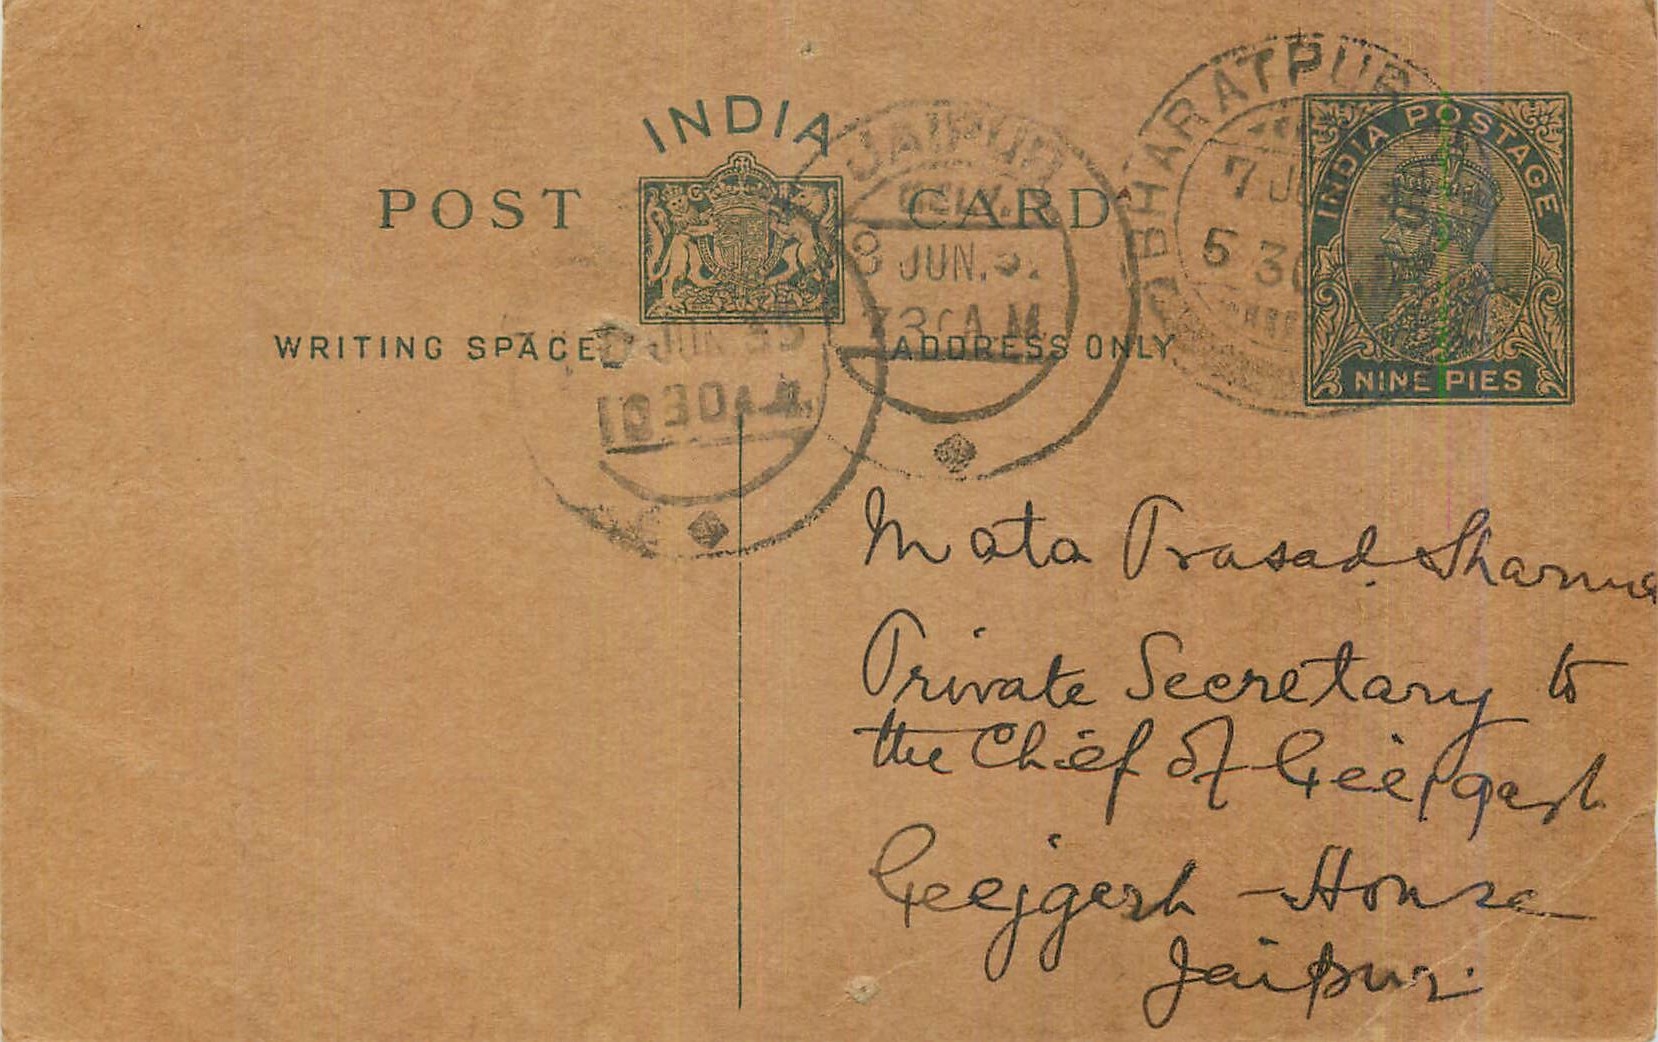 INDIA
POST CARD
WRITING SPACE
ADDRESS ONLY
INDIA POSTAGE
NINE PIES
BHARATPUR
7 JU
5 30
JAIPUR
8 JUN.
730 A.M.
JUN 35
1030 A.M.
Mata Prasad Sharma
Private Secretary to
the Chief of Geejgarh
Geejgarh House
Jaipur.